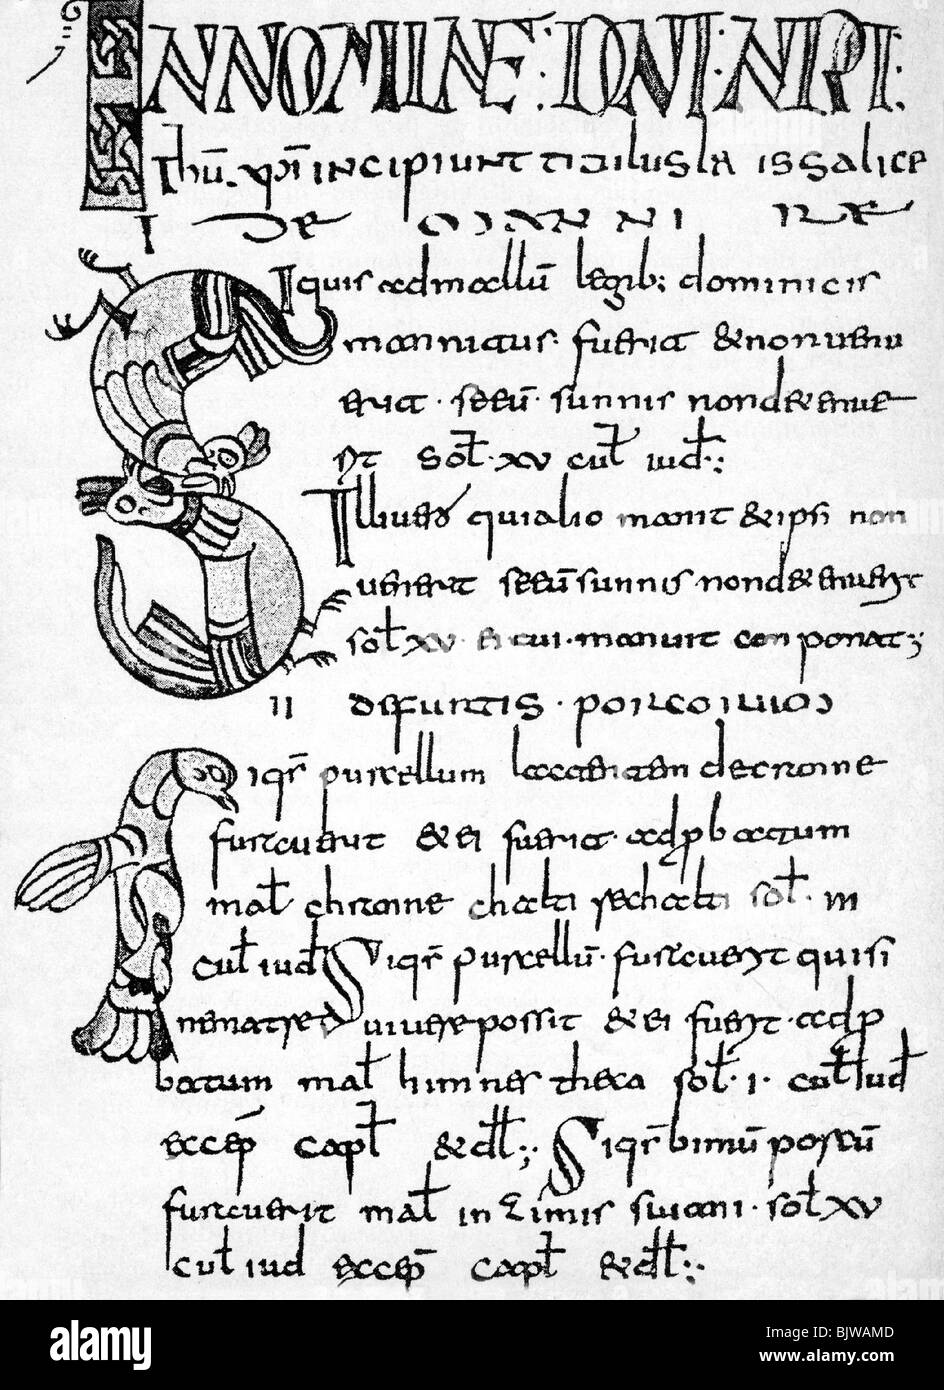 IN NOMINE: DNI: NRI:
Ihū. xpi incipiunt titulus lais salice
I DE MANNIRE
Siquis ad mallū legib; dominicis
mannitus. fuerit & non venu
erit. seeū. sunnis non d&enue
rit sol. xv cul iud.;
Ille uero qui alio manit & ipsi non
uenerit seeū sunnis non d&enuerit
sol xv. ei cui. manuit conponat;
II DE FURTIS. PORCORUM
Siqr purcellum lactantem decranne
furauerit & ei fuerit. adpbatum
mal chranne chalti rechalti sol. III
cul iud Siqr purcellū. furauerit qui si
ne matre uiuere possit & ei fuerit. adp
batum mal himnes theca sol. I. cul iud
excep capl & dl.; Siqr bimū porcū
furauerit mal in zimis suiani. sol XV
cul iud excep capl & dl.;
a
alamy
Image ID: BJWAMD
www.alamy.com